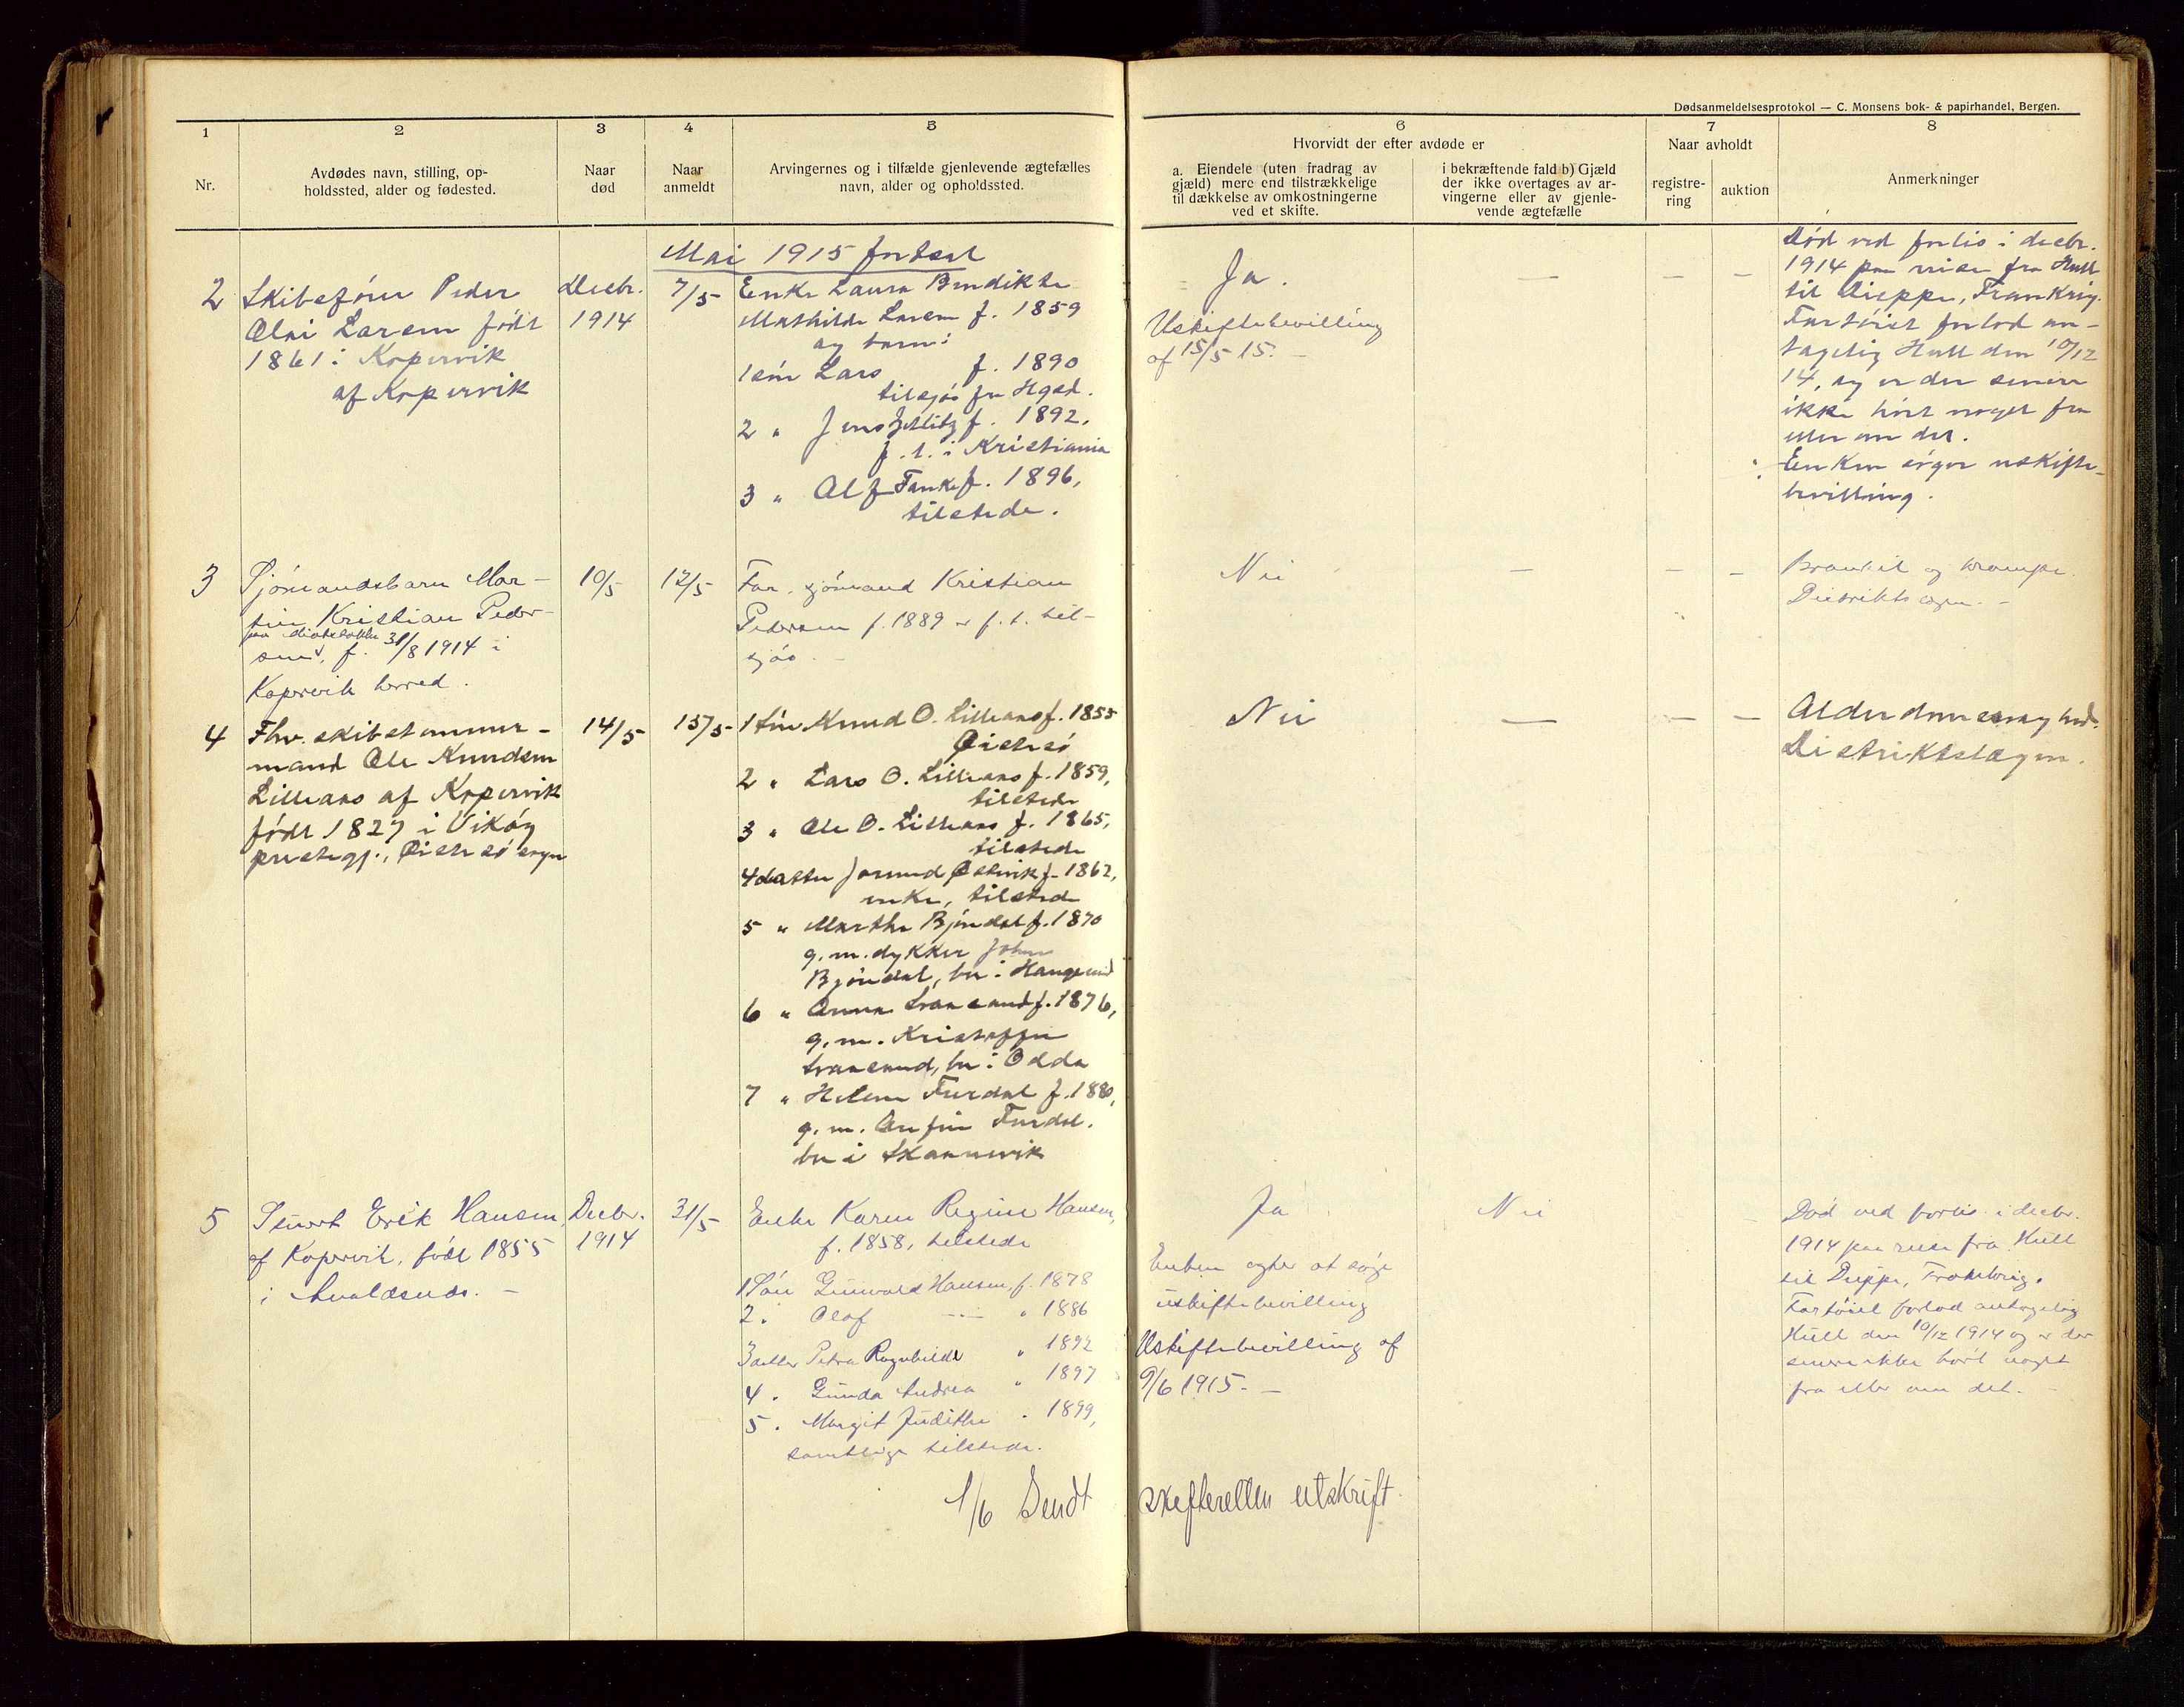 Dødsanmeldelsesprotokol — C. Monsens bok- & papirhandel, Bergen.
1
Nr.
2
Avdødes navn, stilling, op-
holdssted, alder og fødested.
3
Naar
død
4
Naar
anmeldt
5
Arvingernes og i tilfælde gjenlevende ægtefælles
navn, alder og opholdssted.
6
Hvorvidt der efter avdøde er
a. Eiendele (uten fradrag av
gjæld) mere end tilstrækkelige
til dækkelse av omkostningerne
ved et skifte.
i bekræftende fald b) Gjæld
der ikke overtages av ar-
vingerne eller av gjenle-
vende ægtefælle
7
Naar avholdt
registre-
ring
auktion
8
Anmerkninger
Mai 1915 fortsat
2
Skibsfører Peder
Olai Larsen født
1861 i Kopervik
af Kopervik
Decbr.
1914
7/5
Enke Laura Bendikte
Mathilde Larsen f. 1859
og barn:
1 søn Lars f. 1890
tilsjøs fra Hgsd.
2 " Jens f. 1892,
f. t. i Kristiania
3 " Alf Tank f. 1896,
tilstede.
Ja.
Uskiftebevilling
af 15/5 15. –
—
—
—
Død ved forlis i decbr.
1914 paa reise fra Hull
til Dieppe, Frankrig.
Fartøiet forlod an-
tagelig Hull den 10/12
14, og er der senere
ikke hørt noget fra
eller om det.
Enken søger uskifte-
bevilling.
3
Sjømandsbarn Mar-
tin Kristian Peder-
sen, f. 31/8 1914 i
Kopervik herred.
10/5
12/5
Far, sjømand Kristian
Pedersen f. 1889 – f. t. til-
sjøs. –
Nei
—
—
—
Bronkit og krampe.
Distriktslægen. –
4
Fhv. skibstømmer-
mand Ole Knudsen
Lilleaas af Kopervik
født 1827 i Vikøy
prestegj., Øistesø sogn
14/5
15/5
1 Søn Knud O. Lilleaas f. 1855
Øistesø
2 " Lars O. Lilleaas f. 1859,
tilstede
3 " Ole O. Lilleaas f. 1865,
tilstede
4 datter Jorund Østvik f. 1862,
enke, tilstede
5 " Marthe Bjøndal f. 1870
g. m. dykker Johan
Bjøndal, bor i Haugesund
6 " Anna Svaasand f. 1876,
g. m. Kristoffer
Svaasand, bor i Odda
7 " Helene Furdal f. 1880,
g. m. Arfin Furdal.
bor i Skaanevik
Nei
—
—
—
Alderdomssvaghed.
Distriktslægen.
5
Stuert Erik Hansen
af Kopervik, født 1855
i Avaldsnes. –
Decbr.
1914
31/5
Enke Karen Regine Hansen,
f. 1858, tilstede
1 Søn Gunvald Hansen, f. 1878
2 " Olaf —"— " 1886
3 datter Petra Ragnhilde " 1892
4 " Gunda Andrea " 1897
5 " Margit Judithe " 1899,
samtlige tilstede.
Ja
Enken agter at søge
uskiftebevilling
Uskiftebevilling af
9/6 1915. –
Nei
Død ved forlis i decbr.
1914 paa reise fra Hull
til Dieppe, Frankrig.
Fartøiet forlod antagelig
Hull den 10/12 1914 og er der
senere ikke hørt noget
fra eller om det. –
1/6 Sendt skifteretten utskrift.